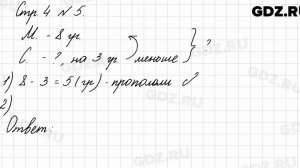 GDZ.RU
Стр. 4 № 5.
М. - 8 гр.
С. - ?, на 3 гр. меньше } ?
1) 8 - 3 = 5 (гр) - пропололи
2)
Ответ:
GDZ.RU